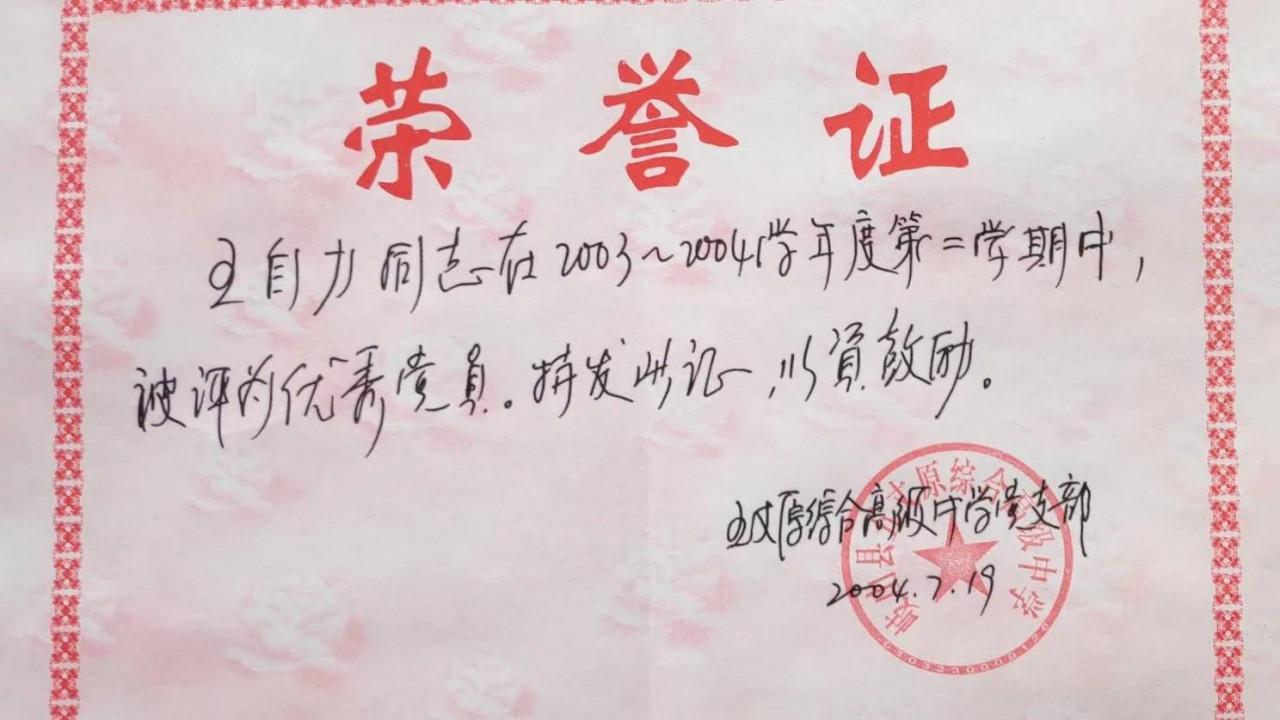 荣誉证
王自力同志在2003~2004学年度第二学期中，
被评为优秀党员。特发此证，以资鼓励。
五丈原综合高级中学党支部
2004.7.19
岐山县五丈原综合高级中学